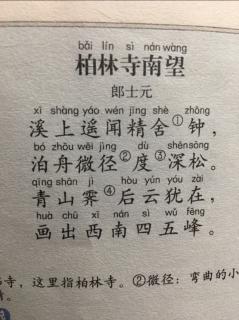 bǎi lín sì nán wàng
柏林寺南望
郎士元
xī shàng yáo wén jīng shè zhōng
溪上遥闻精舍①钟，
bó zhōu wēi jìng dù shēn sōng
泊舟微径②度③深松。
qīng shān jì hòu yún yóu zài
青山霁④后云犹在，
huà chū xī nán sì wǔ fēng
画出西南四五峰。
寺，这里指柏林寺。②微径：弯曲的小